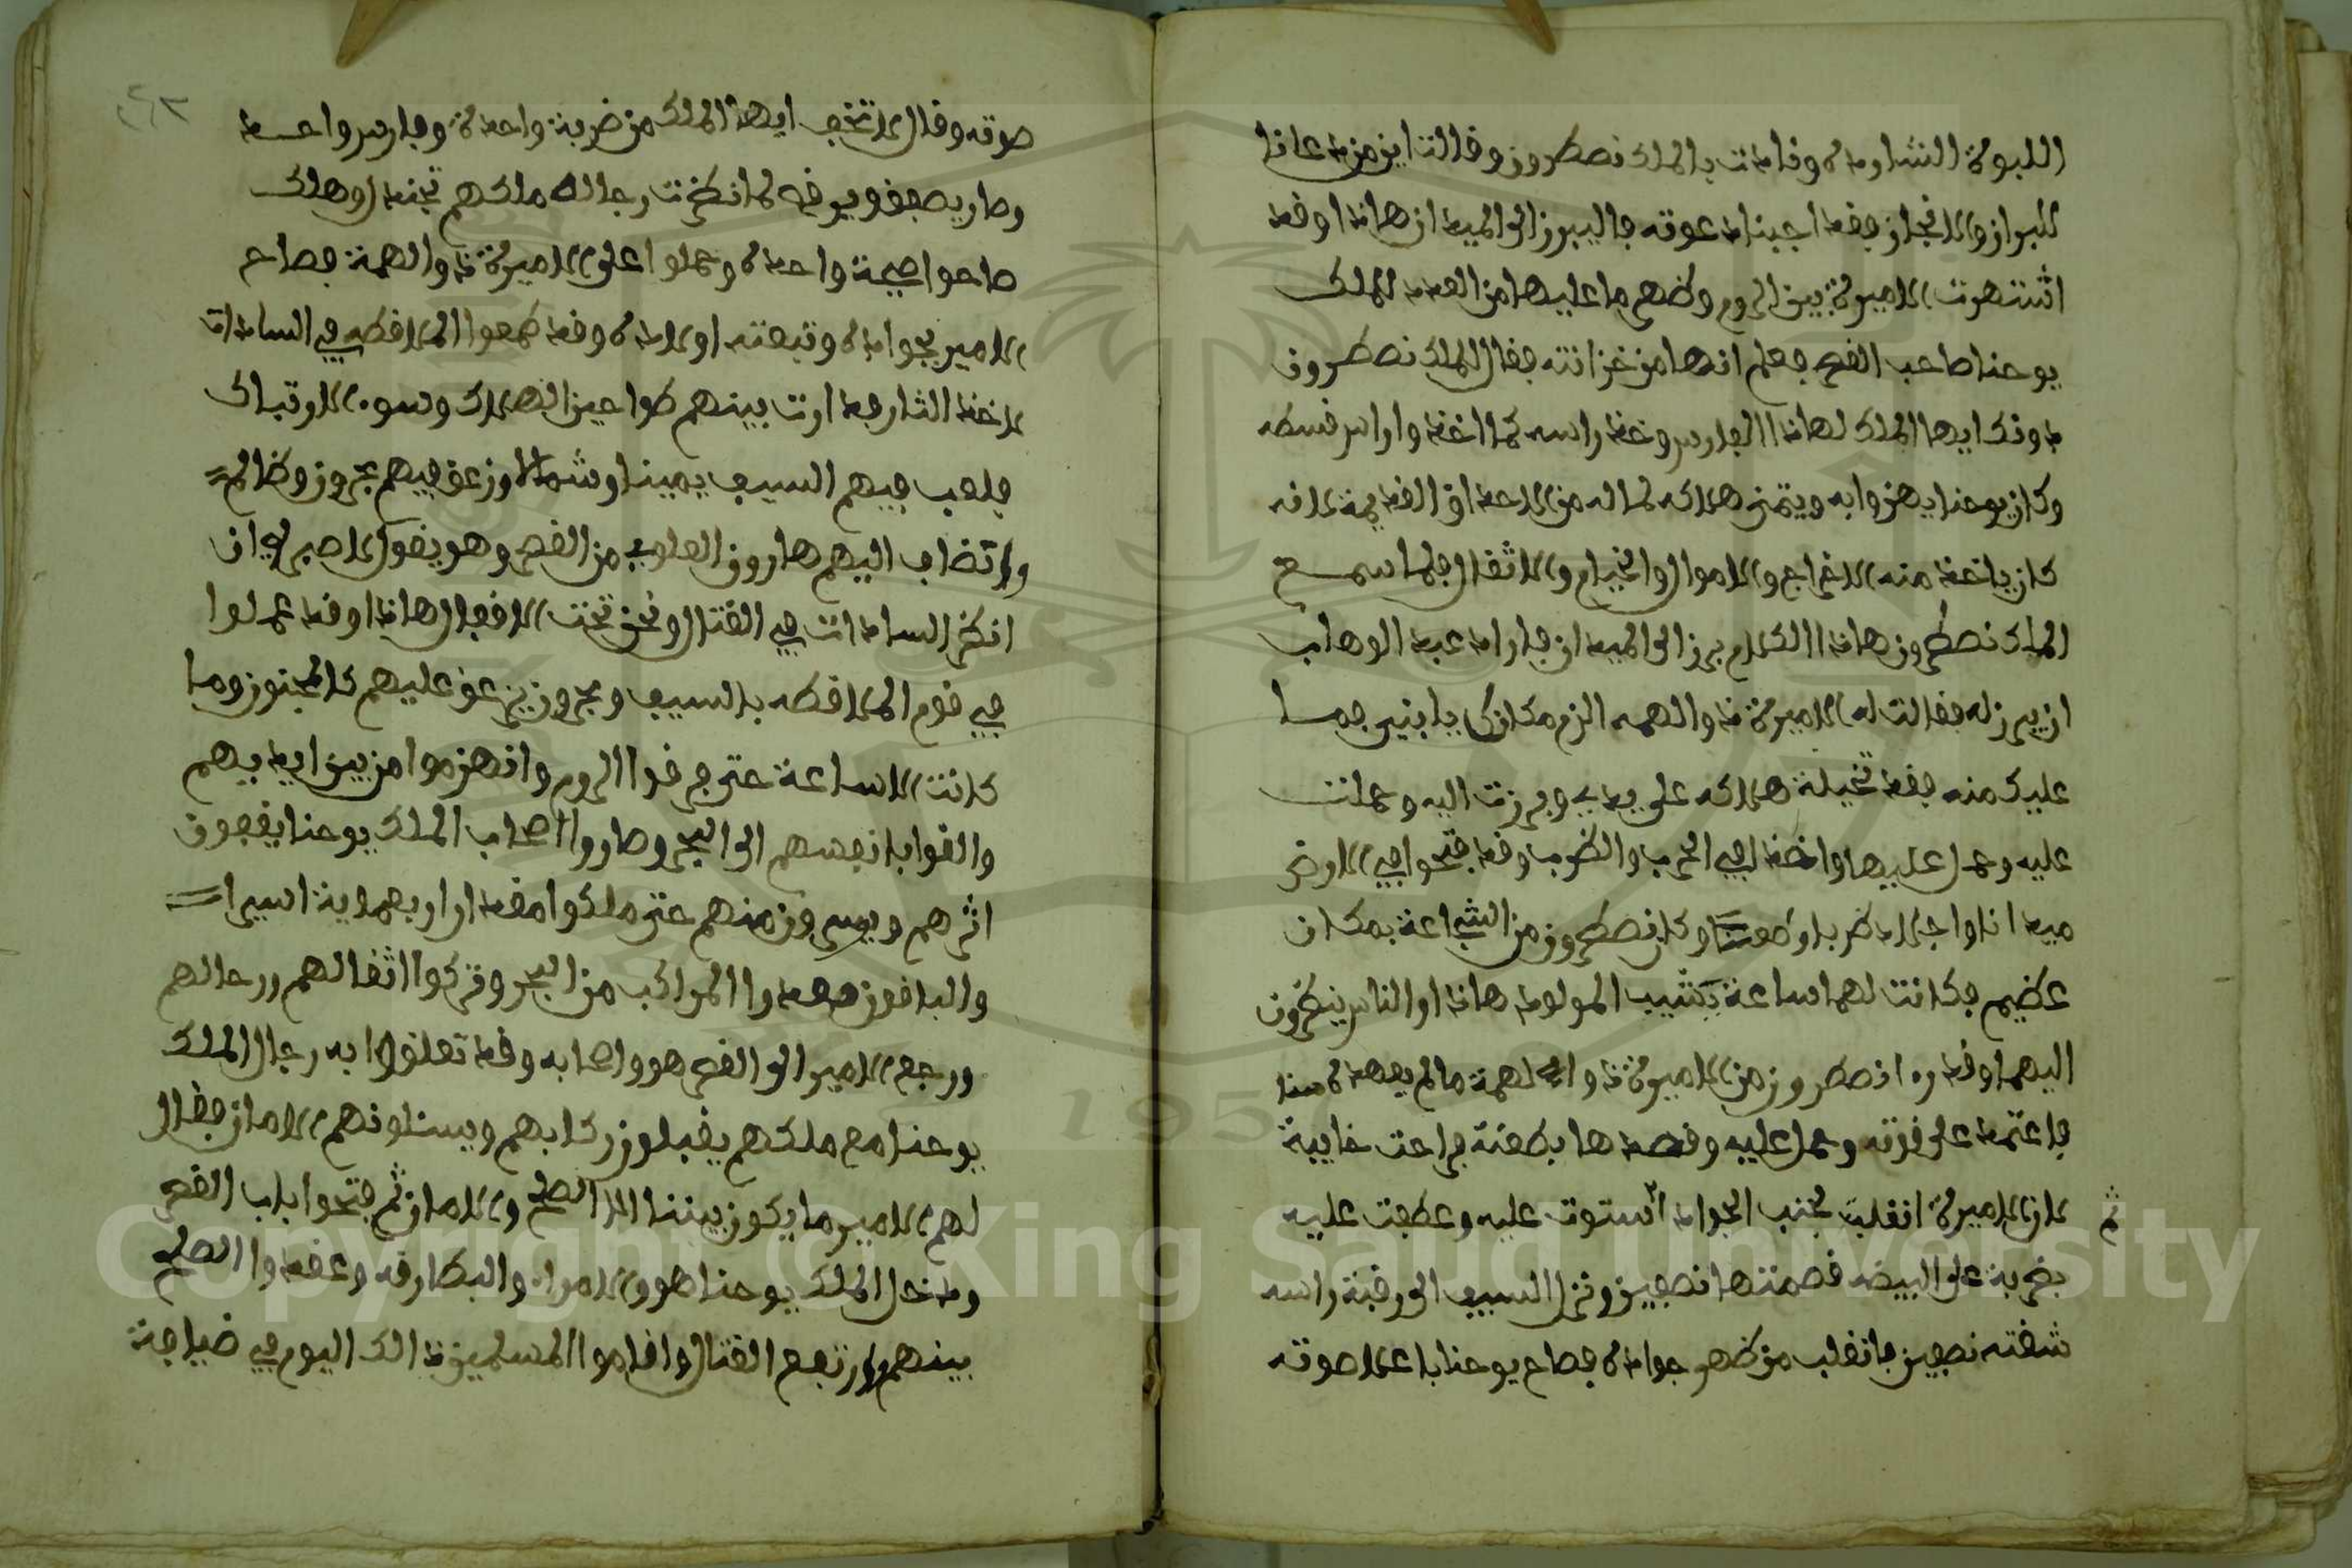 اللبوة الشاردة ونادت بالملك نصطرون وقالت اين من دعانا
للبراز والانجاز فقد اجبنا دعوته فاليبرز الى الميدان هاذا وقد
اشتهرت الاميرة بين الروم وظهر ما عليها من العدد للملك
يوحنا صاحب القصر فعلم انها من خزانته فقال للملك نصطرون
دونك ايها الملك لهاذا الفارس وخذ راسه كما اخذ واراس نسطه
وكان يوحنا يهزوا به ويتمنى هلاكه لما له من الاحداق القديمة لانه
كان ياخذ منه الخراج والاموال والخيام والاثقال فلما سمع
الملك نصطرون هاذا الكلام برز الى الميدان فاراد عبد الوهاب
ان يبرز له فقالت له الاميرة ذو الهمه الزم مكانك يا بني فما
عليك منه فقد تخيلة هلاكه على يدي وبرزت اليه وحملت
عليه وحمل عليها واخذا في الحرب والضرب وقد فتحوا في الارض
ميدانا واجالاد ضربا وطعنا وكان نصطرون من الشجاعة بمكان
عظيم فكانت لهما ساعة تشيب المولود هاذا والناس ينظرون
اليهما وقد را نصطرون من الاميرة ذوا الهمة ما لم يعهده منا
فاعتمد على قوته وحمل عليه وقصدها بطعنة فراحت خايبة
لان الاميرة انقلبت بجنب الجواد ثم استوت عليه وعطفت عليه
بضربة على البيضه قصمتها نصفين ونزل السيف الى رقبة راسه
شقته نصفين فانقلب من ظهر جواده فصاح يوحنا باعلا صوته
صوته وقال لا تخف ايها الملك من ضربة واحدة وفارس واحد
وصار يصفق ويوخه لما نظرت رجاله ملكهم تجندل وهلك
صاحوا صيحة واحدة وحملوا على الاميرة ذو الهمة فصاح
الامير بجواده وتبعته اولاده وقد طمعوا الملافطه في السادات
لاخذ الثار فدارت بينهم طواحين الهلاك وسوء الارتباك
فلعب فيهم السيف يمينا وشمالا وزعق فيهم بحرون وظالم
وانضاف اليهم هارون العلوي من القصر وهو يقول لا صبر لي ان
انظر السادات في القتال ونحن تحت الافعال هاذا وقد عملوا
في قوم الملافطه بالسيف وبحرون يزعق عليهم كالمجنون وما
كانت الا ساعة حتى فرقوا الروم وانهزموا من بين ايديهم
والقوا بانفسهم الى البحر وصاروا اصحاب الملك يوحنا يقفون
اثرهم وياسرون منهم حتى ملكوا مقدار اربعماية اسيرا
والباقون صعدوا المراكب من البحر وتركوا اثقالهم ورحالهم
ورجع الامير الى القصر هو واصحابه وقد تعلقوا به رجال الملك
يوحنا مع ملكهم يقبلون ركابهم ويسئلونهم الامان فقال
لهم الامير ما يكون بيننا الا الصلح والامان ثم فتحوا باب القصر
ودخل الملك يوحنا هو والامراء والبطارقه وعقدوا الصلح
بينهم وارتفع القتال واقاموا المسلمين ذالك اليوم في ضيافة